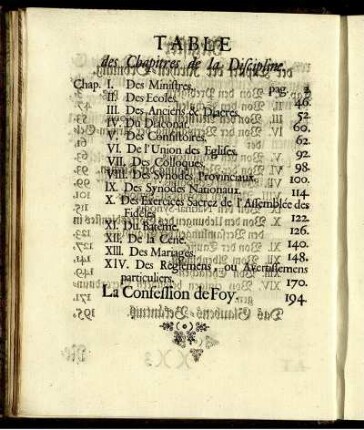 TABLE
des Chapitres de la Discipline.
Chap. I. Des Ministres, pag. 2
II. Des Ecoles, 46.
III. Des Anciens & Diacres, 52
IV. Du Diaconat, 60.
V. Des Consistoires, 62.
VI. De l'Union des Eglises, 92.
VII. Des Colloques, 98.
VIII. Des Synodes Provinciaux, 100.
IX. Des Synodes Nationaux, 114.
X. Des Exercices Sacrez de l'Assemblée des
Fideles, 122.
XI. Du Batême, 126.
XII. De la Cène, 140.
XIII. Des Mariages, 148.
XIV. Des Règlemens, ou Avertissemens
particuliers, 170.
La Confession de Foy. 194.